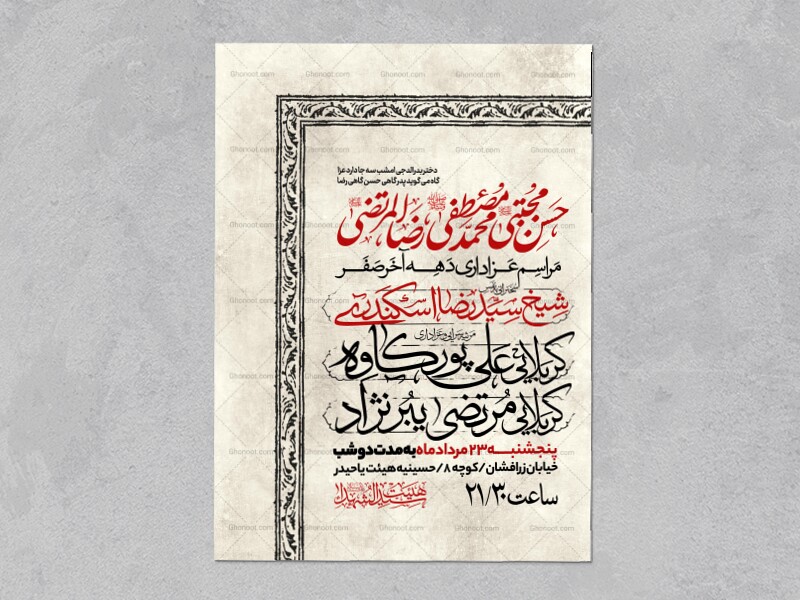 دختر بدرالدجی امشب سه جا دارد عزا
گاه می گوید پدر گاهی حسن گاهی رضا
حسن مجتبی محمد مصطفی رضا المرتضی
مراسم عزاداری دهه آخر صفر
سخنرانی
شیخ سیدرضا اسکندری
مرثیه سرایی و عزاداری
کربلایی علی پورکاوه
کربلایی مرتضی یبرنژاد
پنجشنبه ۲۳ مرداد ماه به مدت دو شب
خیابان زرافشان / کوچه ۸ / حسینیه هیئت یا حیدر
ساعت ۲۱/۳۰
هیئت سیدالشهدا
Ghonoot.com